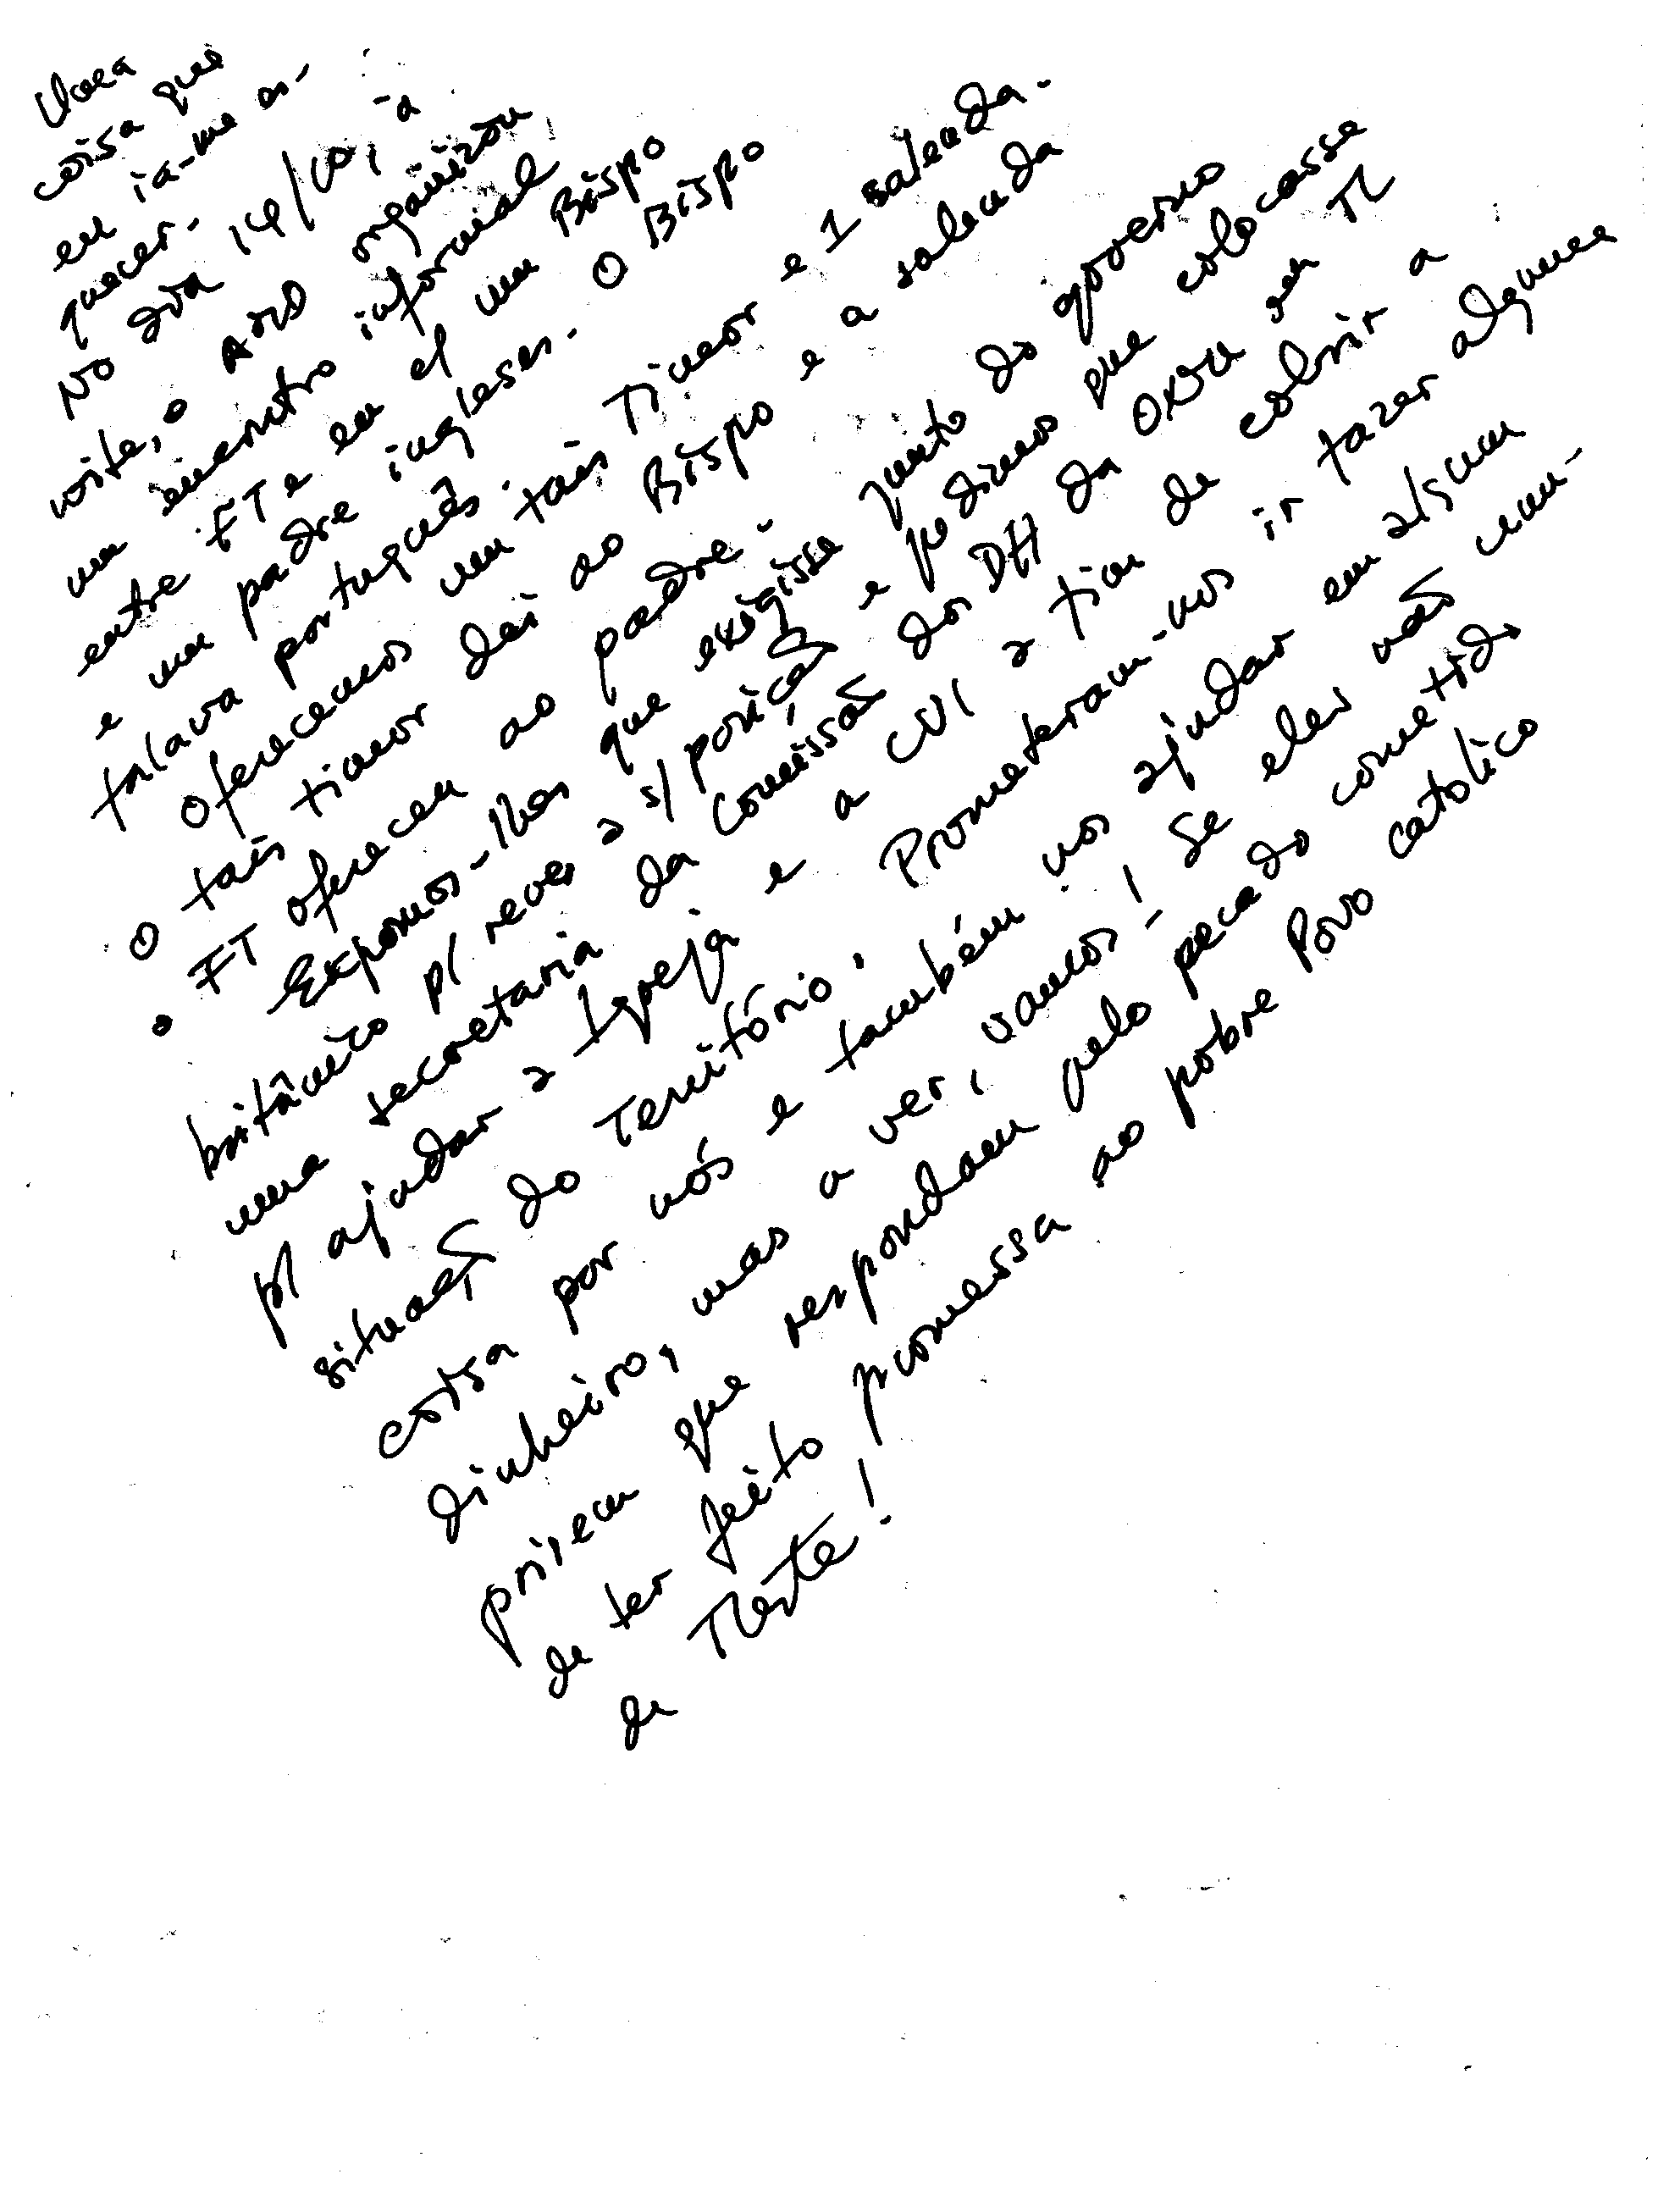 Uma
coisa que
eu ia-me es-
quecer.
No dia 14/10, à
noite, o Arld organizou
um encontro informal
entre FT e eu c/ um Bispo
e um padre ingleses. O Bispo
falava português.
Oferecemos um tais Timor e 1 salenda.
O tais timor dei ao Bispo e a salenda
o FT ofereceu ao padre.
Expomos-lhes que exigisse junto do governo
britânico p/ rever a s/ posição e pedimos que colocasse
uma secretaria da Comissão dos DH da ONU em TL
p/ ajudar a Igreja e a CVI a fim de cobrir a
situação do Território. Prometeram-nos ir fazer alguma
coisa por nós e também nos ajudar em algum
dinheiro, mas a ver, vamos! Se eles não cum-
prirem que respondam pelo pecado cometido
de ter feito promessa ao pobre Povo católico
de TLeste!